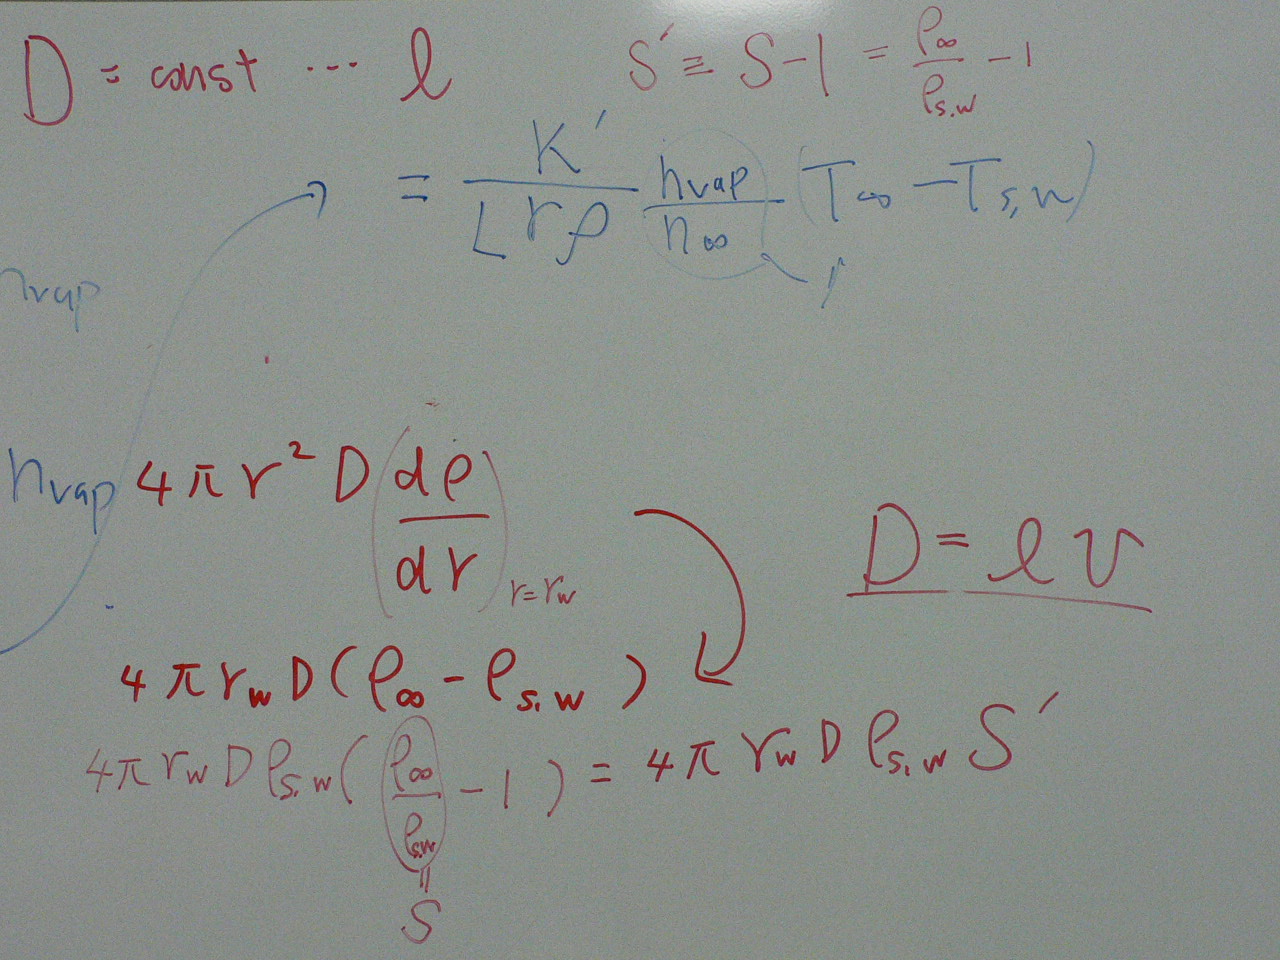 D = const ... l
S′ ≡ S-1 = ρ∞/ρs,w - 1
= K′/(Lrρ) nvap/n∞ (T∞ - Ts,w)
nvap
nvap 4πr² D (dρ/dr) r=rw
D = lv
4πrw D(ρ∞ - ρs,w)
4πrw Dρs,w(ρ∞/ρs,w - 1) = 4πrw Dρs,w S′
=
S